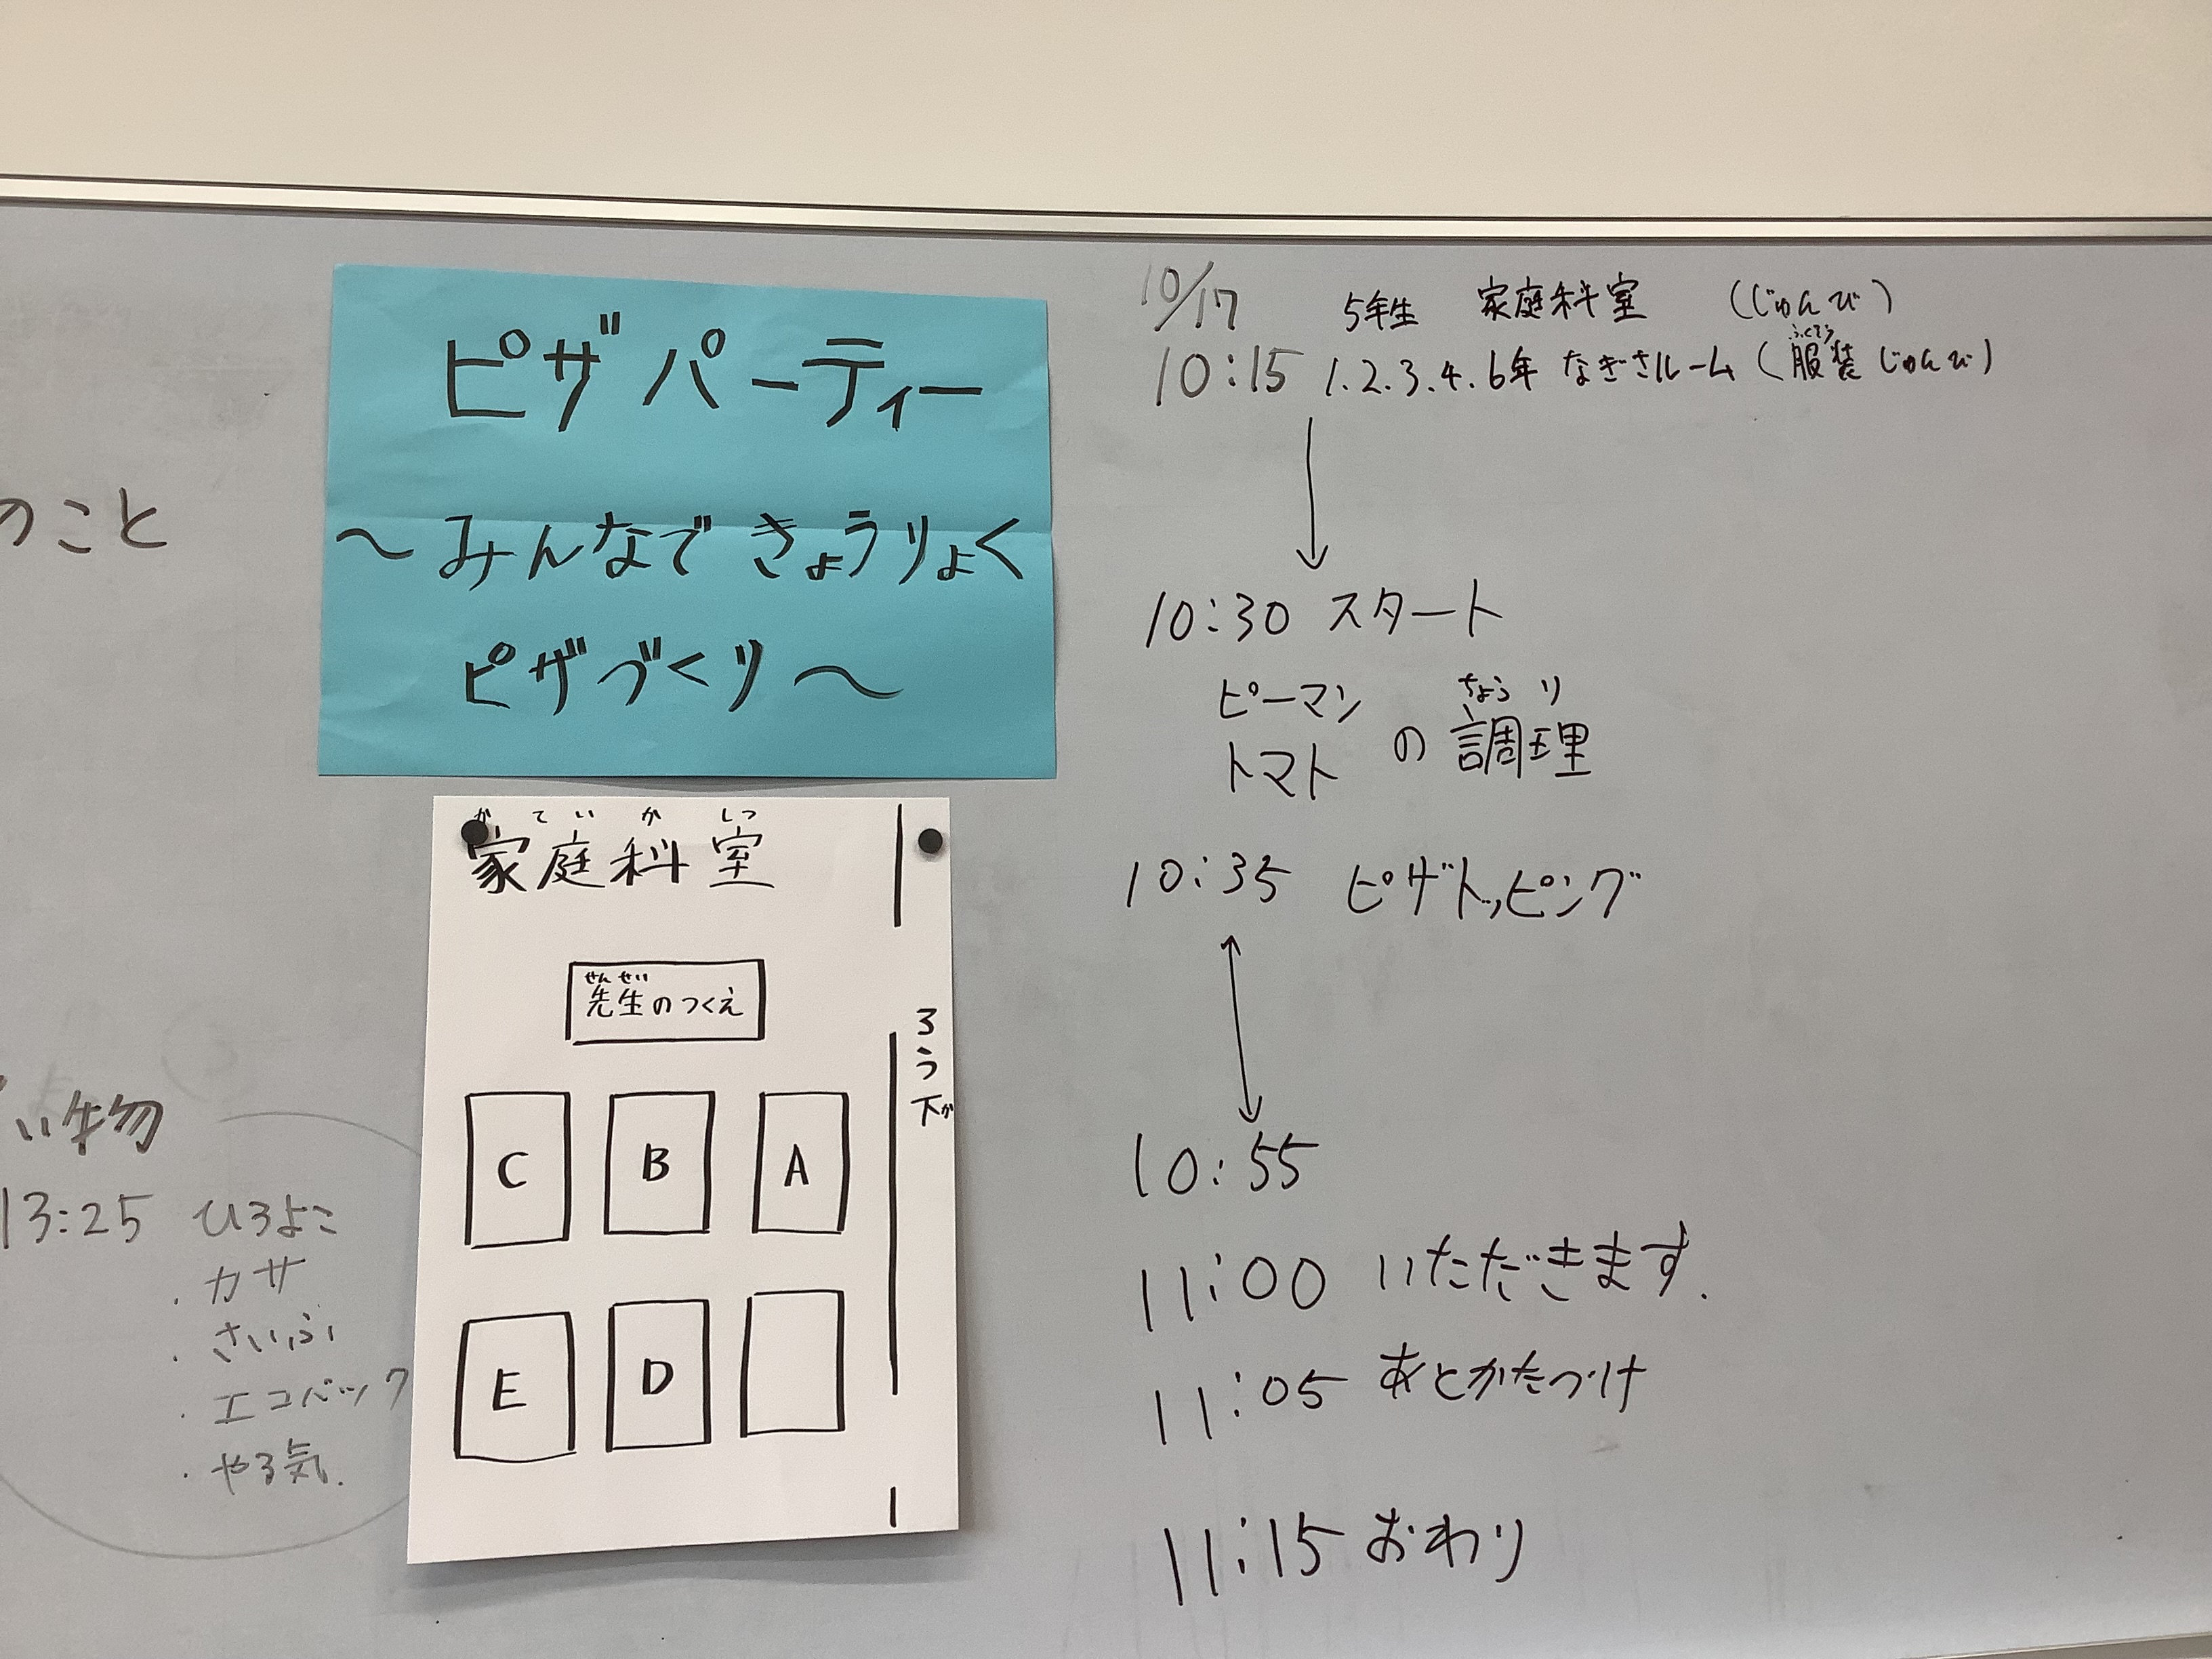 のこと
い物
13:25 ひろよこ
・カサ
・さいふ
・エコバック
・やる気.
ピザパーティー
～みんなで きょうりょく
ピザづくり～
がていかしつ
家庭科室
せんせい
先生のつくえ
ろう下
か
C B A
E D
10/17 5年生 家庭科室 (じゅんび)
ふくそう
10:15 1.2.3.4.6年 なぎさルーム (服装じゅんび)
10:30 スタート
ピーマン
トマト
ちょうり
の調理
10:35 ピザトッピング
10:55
11:00 いただきます.
11:05 あとかたづけ
11:15 おわり